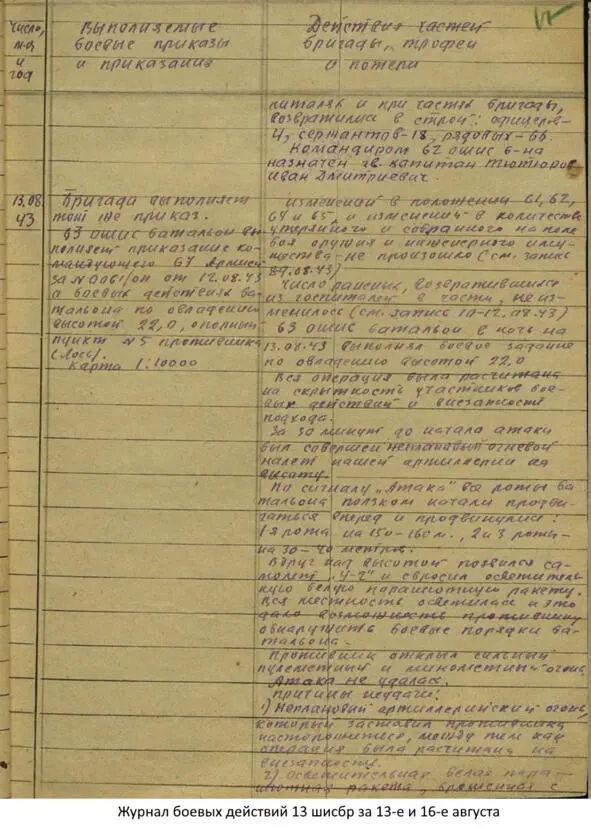 Число, м-ц и год
Выполняемые боевые приказы и приказания
Действия частей бригады, трофеи и потери
питалях и при частях бригады,
возвратились в строй: офицеров-
4, сержантов-18, рядовых-66.
Командиром 62 ошис б-на
назначен гв. капитан Тютюров
Иван Дмитриевич.
13.08.
43
Бригада выполняет
тот же приказ.
63 ошис батальон вы-
полняет приказание ко-
мандующего 67 Армией
за № 0061/оп от 12.08.43
о боевых действиях ба-
тальона по овладению
высотой 22,0, опорный
пункт №5 противника
(Лось).
Карта 1:10000
Изменений в положении 61, 62,
64 и 65, и изменений в количестве
утерянного и собранного на поле
боя оружия и инженерного иму-
щества - не произошло (см. запись
89.08.43)
Число раненых, возвратившихся
из госпиталей в части, не из-
менилось (см. запись 10-12.08.43)
63 ошис батальон в ночь на
13.08.43 выполнял боевое задание
по овладению высотой 22,0
Вся операция была рассчитана
на скрытность участников бое-
вых действий и внезапность
подхода.
За 30 минут до начала атаки
был совершен неплановый огневой
налет нашей артиллерии на
высоту.
По сигналу „Атака" все роты ба-
тальона ползком начали продви-
гаться вперед и продвинулись:
1-я рота на 150-160 м., 2 и 3 роты-
на 30-40 метров.
Вдруг над высотой появился са-
молет „У-2" и сбросил осветитель-
ную белую парашютную ракету.
Вся местность осветилась и это
дало возможность противнику
обнаружить боевые порядки ба-
тальона.
Противник открыл сильный
пулеметный и минометный огонь.
Атака не удалась.
Причины неудачи:
1) Неплановый артиллерийский огонь,
который заставил противника
насторожиться, между тем как
операция была рассчитана на
внезапность.
2) Осветительная белая пара-
шютная ракета, брошенная с
Журнал боевых действий 13 шисбр за 13-е и 16-е августа